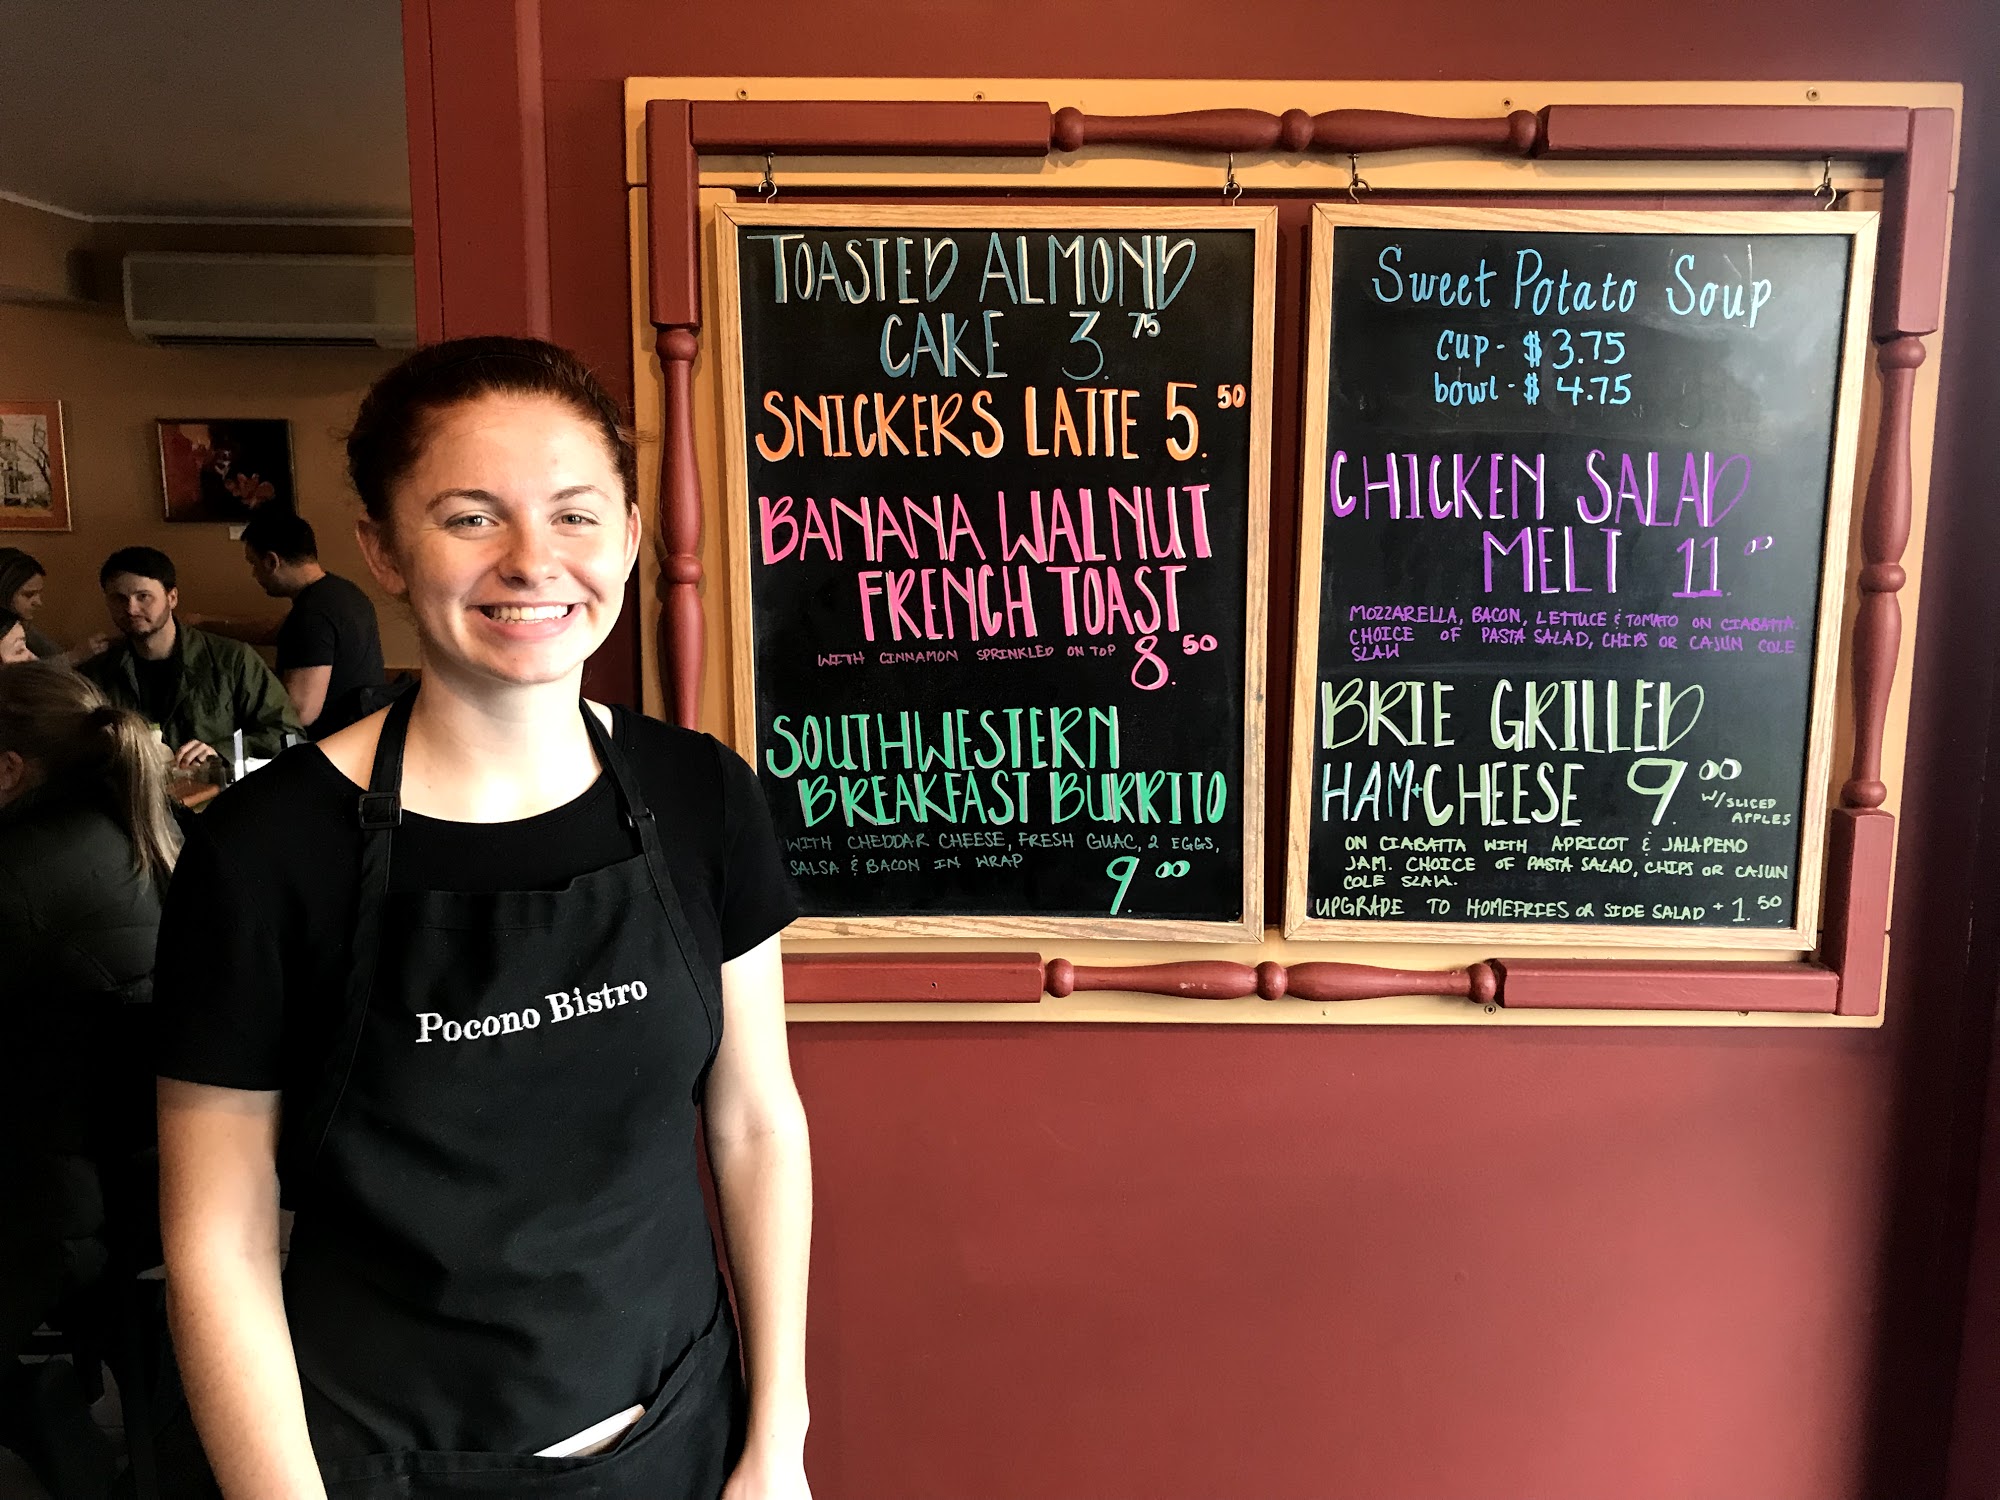 Pocono Bistro
TOASTED ALMOND
CAKE 3.75
SNICKERS LATTE 5.50
BANANA WALNUT
FRENCH TOAST
WITH CINNAMON SPRINKLED ON TOP 8.50
SOUTHWESTERN
BREAKFAST BURRITO
WITH CHEDDAR CHEESE, FRESH GUAC, 2 EGGS,
SALSA & BACON IN WRAP 9.00
Sweet Potato Soup
cup - $3.75
bowl - $4.75
CHICKEN SALAD
MELT 11.00
MOZZARELLA, BACON, LETTUCE & TOMATO ON CIABATTA.
CHOICE OF PASTA SALAD, CHIPS OR CAJUN COLE
SLAW
BRIE GRILLED
HAM+CHEESE 9.00
W/SLICED
APPLES
ON CIABATTA WITH APRICOT & JALAPENO
JAM. CHOICE OF PASTA SALAD, CHIPS OR CAJUN
COLE SLAW.
UPGRADE TO HOMEFRIES OR SIDE SALAD + 1.50